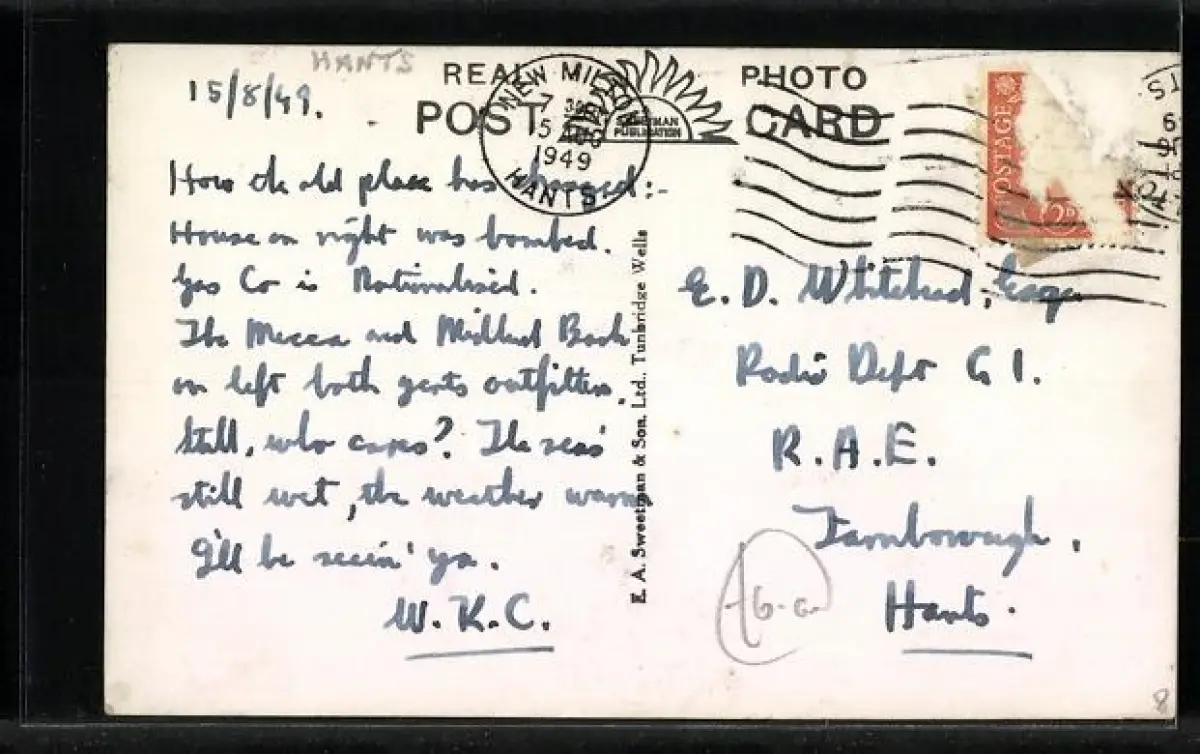 HANTS
15/8/49.
REAL PHOTO
POST CARD
NEW MILTON
7 30
5 AUG
1949
HANTS
SWEETMAN
PUBLICATION
POSTAGE
2D
How the old place has changed:-
House on right was bombed.
Gas Co is Nationalised.
The Mecca and Midland Bank
on left both gents outfitters.
Still, who cares? The seas'
still wet, the weather warm,
I'll be seein' ya.
W.K.C.
E. A. Sweetman & Son, Ltd., Tunbridge Wells
E. D. Whitehead, Esqr
Radio Dept G 1.
R.A.E.
Farnborough.
Hants.
8